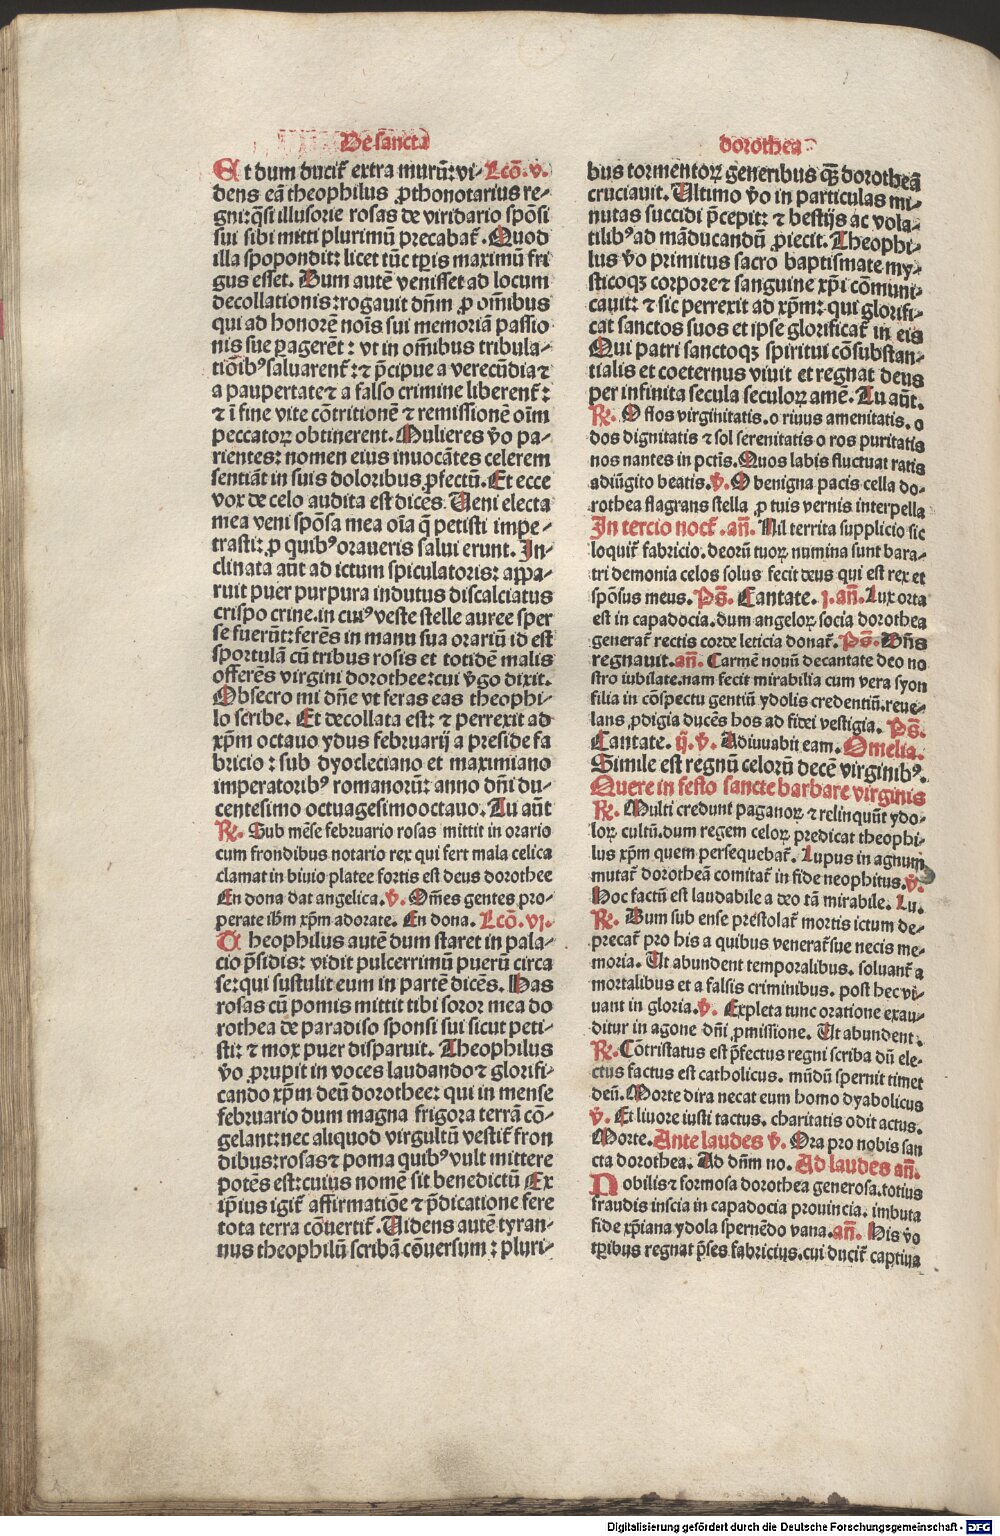 De sancta
Et dum ducit᷑ extra murū: vi- Lcō. v.
dens eā theophilus ꝓthonotarius re-
gni: q̄si illusorie rosas de viridario spōsi
sui sibi mitti plurimū precabat᷑. Quod
illa spopondit: licet tūc tꝑis maximū fri
gus esset. Dum autē venisset ad locum
decollationis: rogauit dn̄m ꝓ om̄ibus
qui ad honorē noīs sui memoriā passio
nis sue ꝑagerēt: vt in om̄ibus tribula-
tiōibꝰ saluarent᷑: ⁊ p̄cipue a verecūdia ⁊
a paupertate ⁊ a falso crimine liberent᷑:
⁊ ī fine vite cōtritionē ⁊ remissionē oīm
peccatoꝝ obtinerent. Mulieres v̄o pa-
rientes: nomen eius inuocātes celerem
sentiāt in suis doloribus ꝓfectū. Et ecce
vox de celo audita est dicēs. Veni electa
mea veni spōsa mea oīa q̄ petisti impe-
trasti: ꝓ quibꝰ oraueris salui erunt. In-
clinata aūt ad ictum spiculatoris: appa-
ruit puer purpura indutus discalciatus
crispo crine. in cuiꝰ veste stelle auree sper
se fuerūt: ferēs in manu sua orariū id est
sportulā cū tribus rosis et totidē malis
offerēs virgini dorothee: cui v̄go dixit.
Obsecro mi dn̄e vt feras eas theophi-
lo scribe. Et decollata est: ⁊ perrexit ad
xp̄m octauo ydus februarij a preside fa
bricio: sub dyocleciano et maximiano
imperatoribꝰ romanorū: anno dn̄i du-
centesimo octuagesimooctauo. Tu aūt
℞. Sub mēse februario rosas mittit in orario
cum frondibus notario rex qui fert mala celica
clamat in biuio platee fortis est deus dorothee
En dona dat angelica. ℣. Om̄es gentes pro-
perate ih̄m xp̄m adorate. En dona. Lcō. vj.
Theophilus autē dum staret in pala-
cio p̄sidis: vidit pulcerrimū puerū circa
se: qui sustulit eum in partē dicēs. Has
rosas cū pomis mittit tibi soror mea do
rothea de paradiso sponsi sui sicut peti-
sti: ⁊ mox puer disparuit. Theophilus
v̄o ꝓrupit in voces laudando ⁊ glorifi-
cando xp̄m deū dorothee: qui in mense
februario dum magna frigora terrā cō-
gelant: nec aliquod virgultū vestit᷑ fron
dibus: rosas ⁊ poma quibꝰ vult mittere
potēs est: cuius nomē sit benedictū Ex
ip̄ius igit᷑ affirmatiōe ⁊ p̄dicatione fere
tota terra cōuertit᷑. Videns autē tyran-
nus theophilū scribā cōuersum: pluri-
dorothea
bus tormentoꝝ generibus q̄ꝫ dorotheā
cruciauit. Ultimo v̄o in particulas mi-
nutas succidi p̄cepit: ⁊ bestijs ac vola-
tilibꝰ ad māducandū ꝓiecit. Theophi-
lus v̄o primitus sacro baptismate my-
sticoqꝫ corpore ⁊ sanguine xp̄i cōmuni-
cauit: ⁊ sic perrexit ad xp̄m: qui glorifi-
cat sanctos suos et ipse glorificat᷑ in eis
Qui patri sanctoqꝫ spiritui cōsubstan-
tialis et coeternus viuit et regnat deus
per infinita secula seculoꝝ amē. Tu aūt.
℞. O flos virginitatis. o riuus amenitatis. o
dos dignitatis ⁊ sol serenitatis o ros puritatis
nos nantes in pctīs. Quos labis fluctuat ratis
adiūgito beatis. ℣. O benigna pacis cella do-
rothea flagrans stella ꝓ tuis vernis interpella
In tercio noct᷑. añ. Nil territa supplicio sic
loquit᷑ fabricio. deorū tuoꝝ numina sunt bara-
tri demonia celos solus fecit deus qui est rex et
spōsus meus. Pš. Cantate. j. añ. Lux orta
est in capadocia. dum angeloꝝ socia dorothea
generat᷑ rectis corde leticia donat᷑. Pš. Dn̄s
regnauit. añ. Carmē nouū decantate deo no
stro iubilate. nam fecit mirabilia cum vera syon
filia in cōspectu gentiū ydolis credentiū. reue-
lans ꝓdigia ducēs hos ad fidei vestigia. Pš.
Cantate. ij. ℣. Adiuuabit eam. Omelia.
Simile est regnū celorū decē virginibꝰ.
Quere in festo sancte barbare virginis
℞. Multi credunt paganoꝝ ⁊ relinquūt ydo-
loꝝ cultū. dum regem celoꝝ predicat theophi-
lus xp̄m quem persequebat᷑. Lupus in agnum
mutat᷑ dorotheā comitat᷑ in fide neophitus. ℣.
Hoc factū est laudabile a deo tā mirabile. Lu.
℞. Dum sub ense prestolat᷑ mortis ictum de-
precat᷑ pro his a quibus venerat᷑ sue necis me-
moria. Ut abundent temporalibus. soluant᷑ a
mortalibus et a falsis criminibus. post hec vi-
uant in gloria. ℣. Expleta tunc oratione exau-
ditur in agone dn̄i ꝓmissione. Ut abundent.
℞. Cōtristatus est p̄fectus regni scriba dū ele-
ctus factus est catholicus. mūdū spernit timet
deū. Morte dira necat eum homo dyabolicus
℣. Et liuore iusti tactus. charitatis odit actus.
Morte. Ante laudes ℣. Ora pro nobis san
cta dorothea. Ad dn̄m no. Ad laudes añ.
Nobilis ⁊ formosa dorothea generosa. totius
fraudis inscia in capadocia prouincia. imbuta
fide xp̄iana ydola spernēdo vana. añ. His v̄o
tꝑibus regnat p̄ses fabricius. cui ducit᷑ captiua
Digitalisierung gefördert durch die Deutsche Forschungsgemeinschaft - DFG